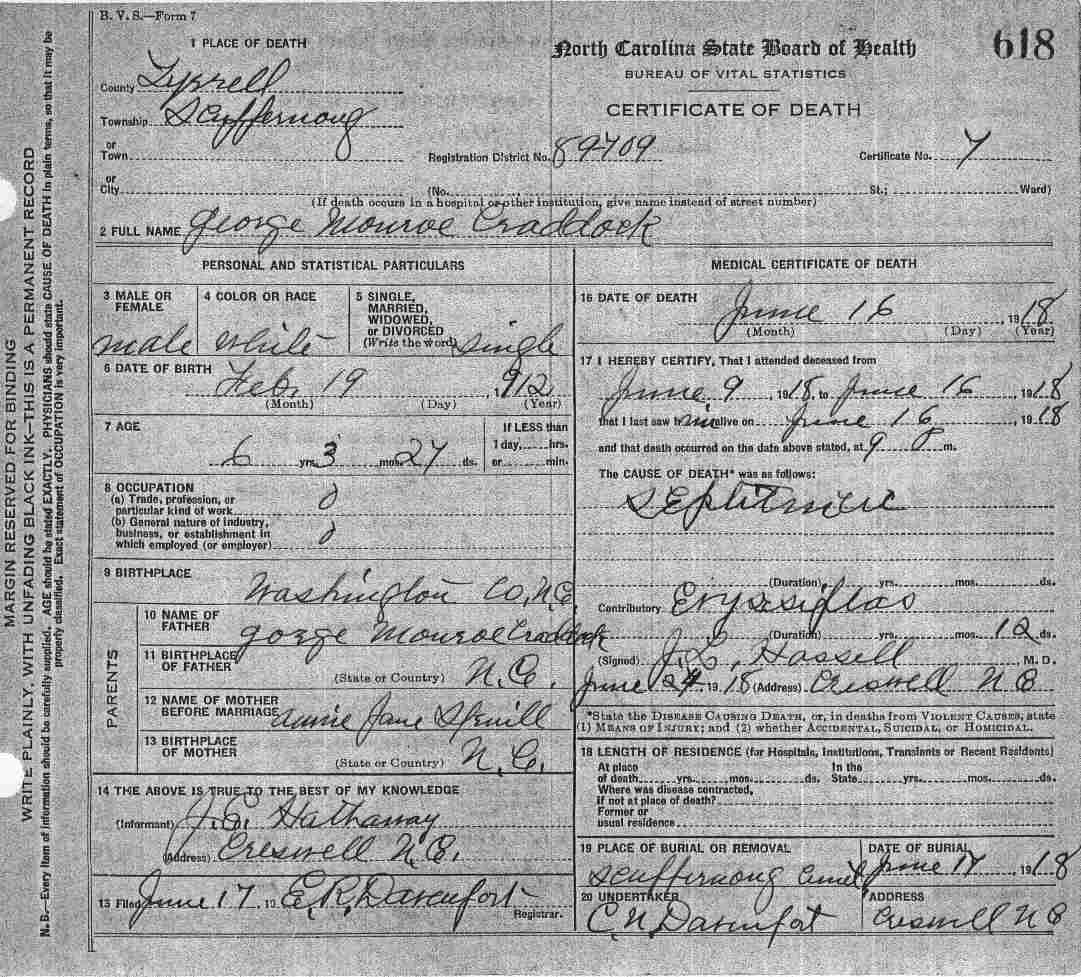 B. V. S.—Form 7
618
North Carolina State Board of Health
BUREAU OF VITAL STATISTICS
CERTIFICATE OF DEATH
1 PLACE OF DEATH
County Tyrrell
Township Scuppernong
or
Town
Registration District No. 89709 Certificate No. 7
or
City (No. St.; Ward)
(If death occurs in a hospital or other institution, give name instead of street number)
2 FULL NAME George Monroe Craddock
PERSONAL AND STATISTICAL PARTICULARS
3 MALE OR FEMALE male
4 COLOR OR RACE white
5 SINGLE, MARRIED, WIDOWED, or DIVORCED (Write the word) single
6 DATE OF BIRTH Feb. 19 , 912
(Month) (Day) (Year)
7 AGE 6 yrs. 3 mos. 27 ds.
If LESS than
1 day, hrs.
or min.
8 OCCUPATION
(a) Trade, profession, or
particular kind of work 0
(b) General nature of industry,
business, or establishment in
which employed (or employer) 0
9 BIRTHPLACE
Washington Co, N.C.
PARENTS
10 NAME OF FATHER gorge Monroe Craddock
11 BIRTHPLACE OF FATHER (State or Country) N.C.
12 NAME OF MOTHER BEFORE MARRIAGE annie Jane Spruill
13 BIRTHPLACE OF MOTHER (State or Country) N.C.
14 THE ABOVE IS TRUE TO THE BEST OF MY KNOWLEDGE
(Informant) J.C. Hathaway
(Address) Creswell N.C.
15 Filed June 17 19 E.R. Davenport
Registrar.
MEDICAL CERTIFICATE OF DEATH
16 DATE OF DEATH June 16 1918
(Month) (Day) (Year)
17 I HEREBY CERTIFY, That I attended deceased from
June 9, 1918, to June 16 1918
that I last saw him alive on June 16, 1918
and that death occurred on the date above stated, at 9 P m.
The CAUSE OF DEATH* was as follows:
(Duration) yrs. mos. ds.
Contributory
(Duration) yrs. mos. 12 ds.
(Signed) J.L. Hassell M. D.
June 24 1918 (Address) Creswell N C
*State the DISEASE CAUSING DEATH, or, in deaths from VIOLENT CAUSES, state
(1) MEANS OF INJURY; and (2) whether ACCIDENTAL, SUICIDAL, or HOMICIDAL.
18 LENGTH OF RESIDENCE (for Hospitals, Institutions, Transients or Recent Residents)
At place In the
of death yrs. mos. ds. State yrs. mos. ds.
Where was disease contracted,
If not at place of death?
Former or
usual residence
19 PLACE OF BURIAL OR REMOVAL DATE OF BURIAL
Scuppernong Cemet June 17 1918
20 UNDERTAKER ADDRESS
C.N. Davenport Creswell N C
MARGIN RESERVED FOR BINDING
WRITE PLAINLY, WITH UNFADING BLACK INK—THIS IS A PERMANENT RECORD
N. B.—Every item of information should be carefully supplied. AGE should be stated EXACTLY. PHYSICIANS should state CAUSE OF DEATH in plain terms, so that it may be
properly classified. Exact statement of OCCUPATION is very important.